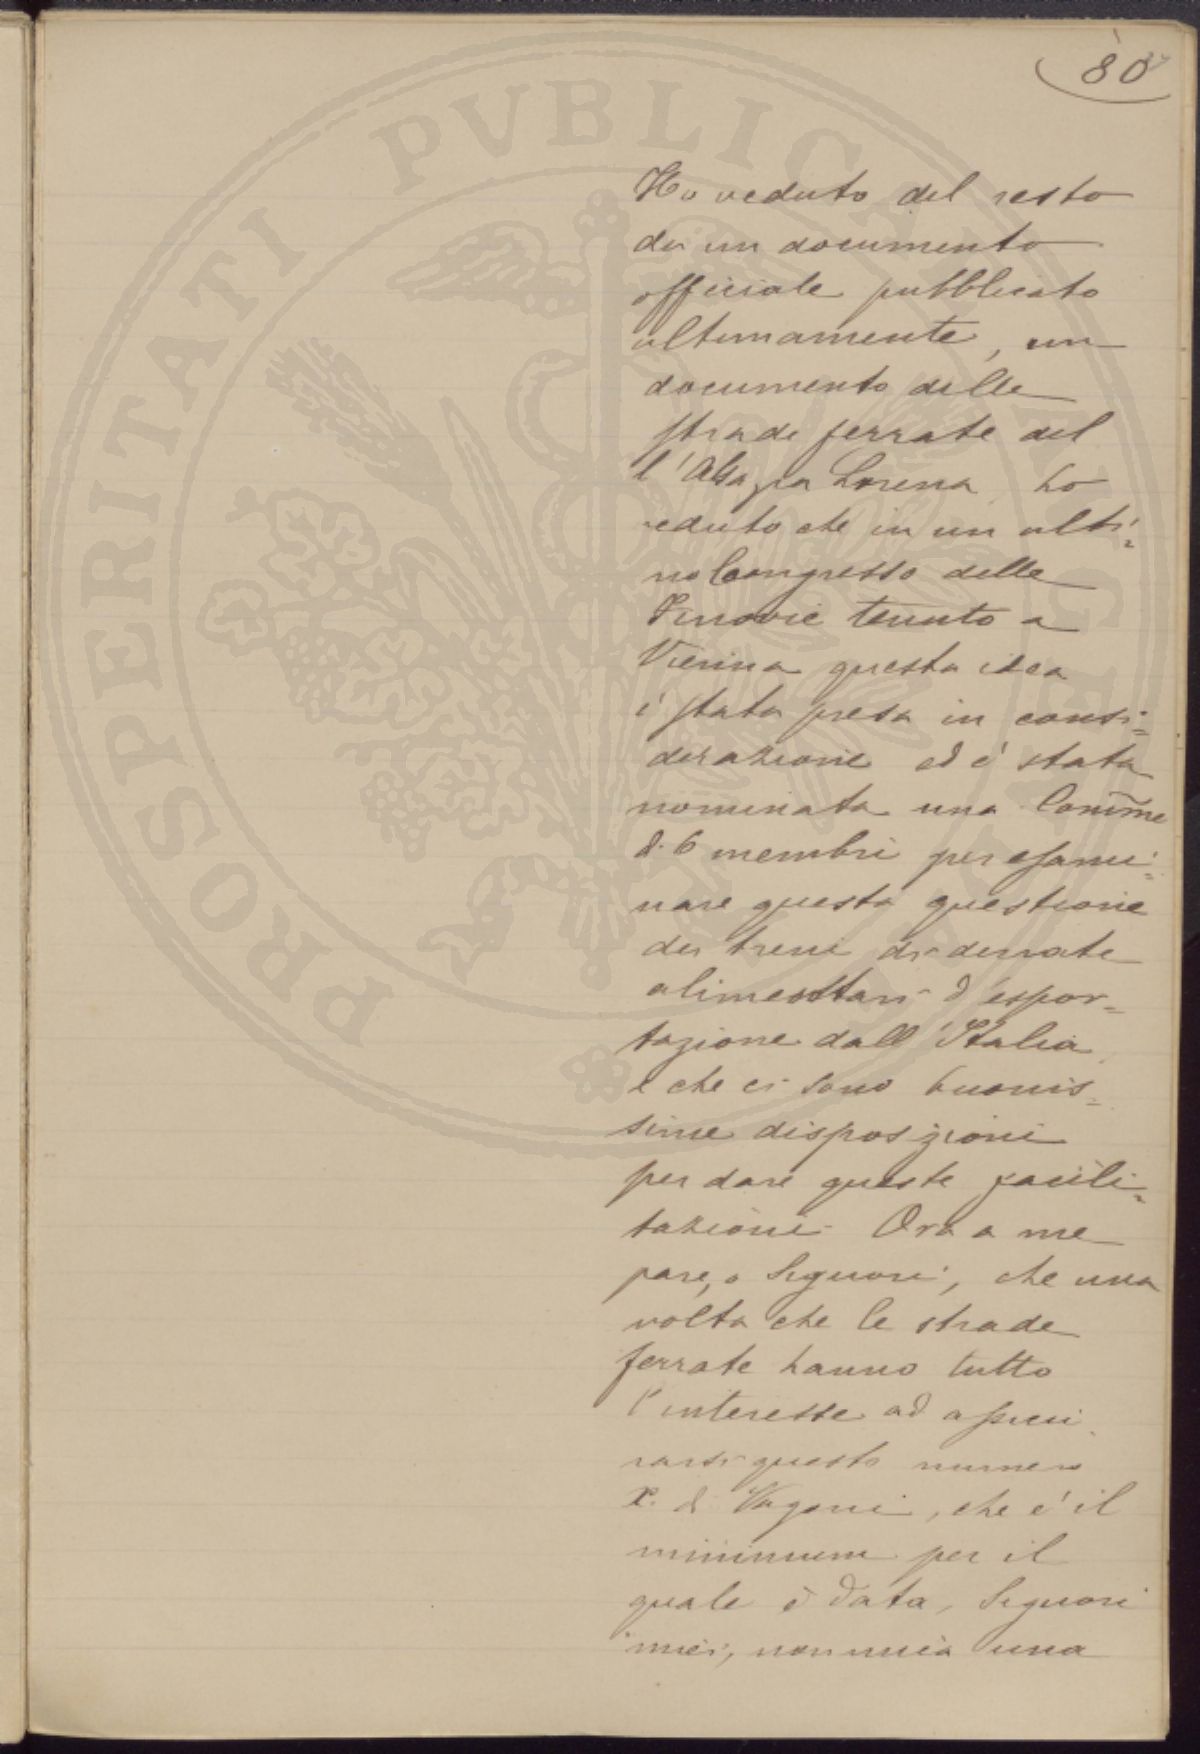 80
Ho veduto del resto
da un documento
officiale pubblicato
ultimamente, un
documento delle
strade ferrate del
l'Alsazia Lorena, ho
veduto che in un ulti=
mo Congresso delle
Ferrovie tenuto a
Vienna questa idea
è stata presa in consi=
derazione ed è stata
nominata una Comme
di 6 membri per esami=
nare questa questione
dei treni di derrate
alimentari d'espor=
tazione dall'Italia,
e che ci sono buonis=
sime disposizioni
per dare queste facili=
tazioni. Ora a me
pare, o Signori, che una
volta che le strade
ferrate hanno tutto
l'interesse ad assicu
rarsi questo numero
X. di Vagoni, che è il
minimum per il
quale è data, Signori
miei, non mia una
PROSPERITATI PVBLICAE AVGENDAE